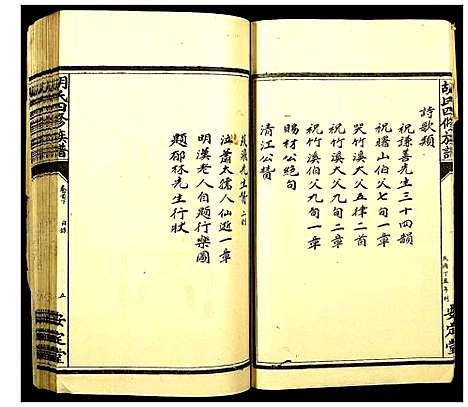 胡氏四修族譜
民國丁丑年刊
安定堂
詩歌類
祝謙善先生三十四韻
祝曙山伯父七旬一章
哭竹溪大父五律二首
祝竹溪大父九旬二章
祝竹溪伯父九旬一章
賜材公絶句
清江公贊
先生贊二則
泣蕭太孺人仙逝一章
明漢老人自題行樂圖
題郁林先生行狀
胡氏四修族譜
卷首下 目錄
五
安定堂